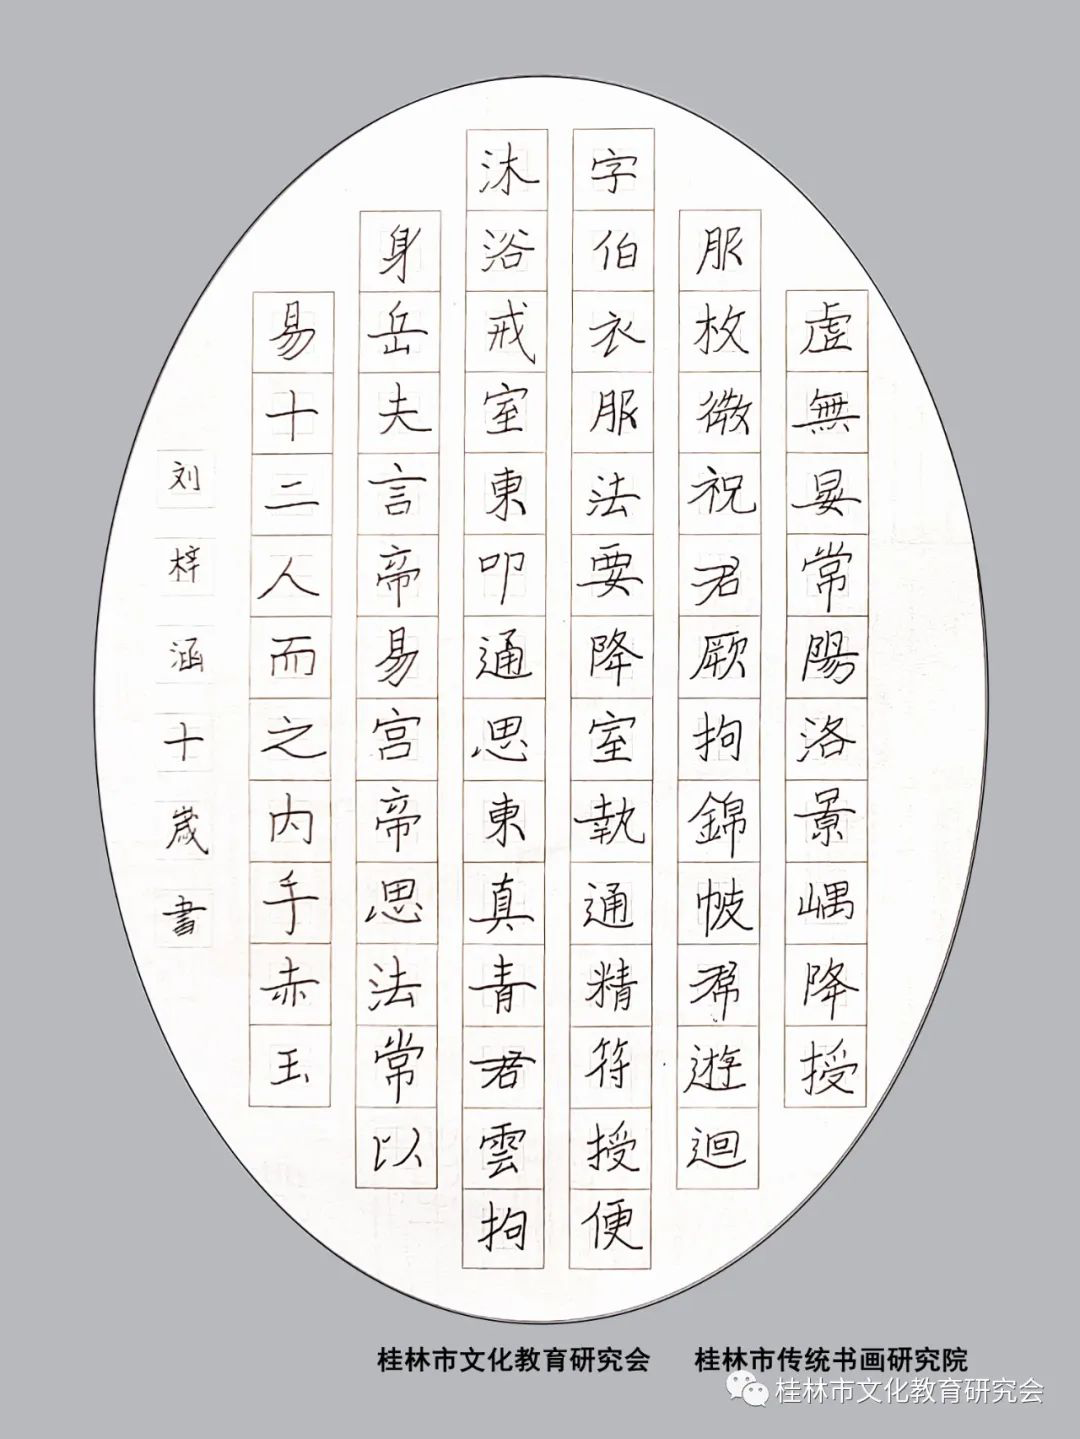 虚無晏常陽洛景嵎降授
服枚微祝君厥拘錦帔君帝遊迴
字伯衣服法要降室執通精符授便
沐浴戒室東叩通思東真青君雲拘
身岳夫言帝易宫帝思法常以
易十二人而之内手赤玉
刘梓涵十歲書
桂林市文化教育研究会 桂林市传统书画研究院
桂林市文化教育研究会